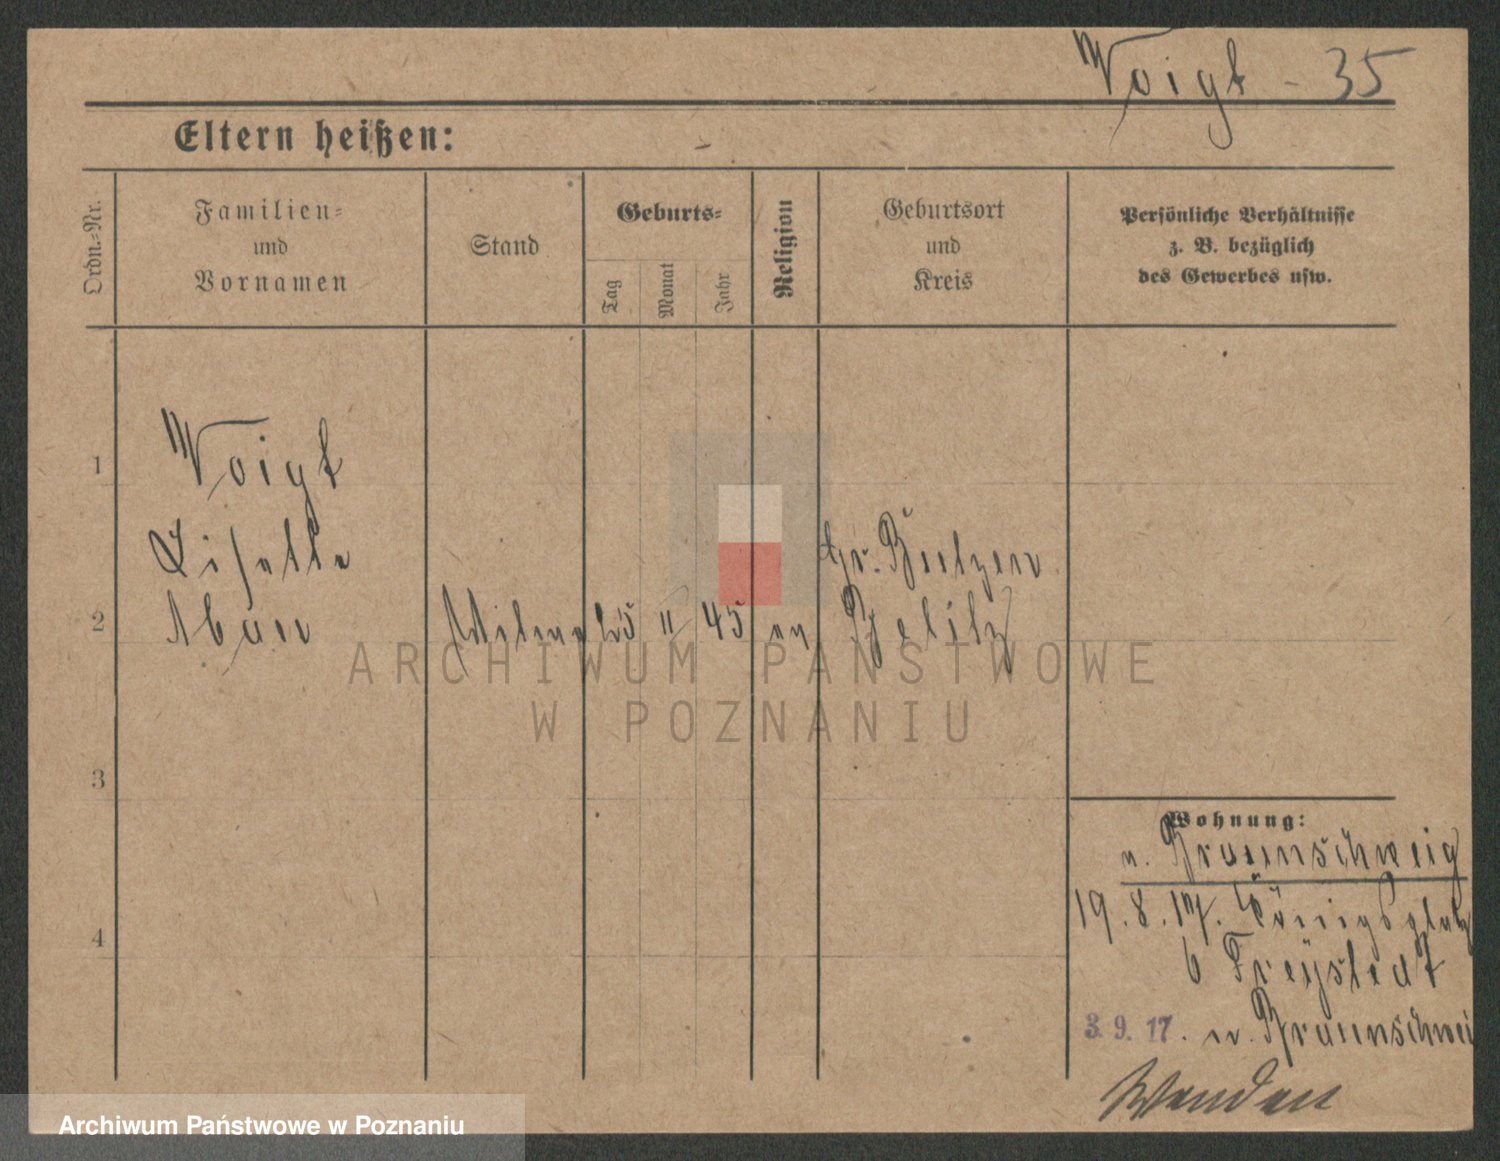 Voigt - 35
Eltern heißen:
Ordn.=Nr.
Familien=
und
Vornamen
Stand
Geburts=
Tag
Monat
Jahr
Religion
Geburtsort
und
Kreis
Persönliche Verhältnisse
z. B. bezüglich
des Gewerbes usw.
1
Voigt
Lisette
Gr. Beetzen
2
25 11 45 ev Belitz
3
4
Wohnung:
n. Braunschweig
19. 8. 17. Königsplatz
6 Freystedt
3. 9. 17. n. Braunschwei
Wenden
ARCHIWUM PAŃSTWOWE
W POZNANIU
Archiwum Państwowe w Poznaniu